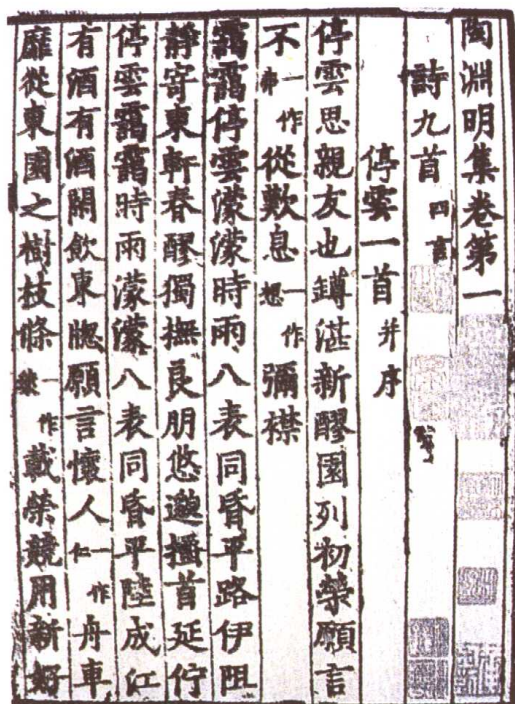 陶淵明集卷第一
詩九首四言
停雲一首并序
停雲思親友也罇湛新醪園列初榮願言
不一作弗從歎息一作想彌襟
靄靄停雲濛濛時雨八表同昏平路伊阻
靜寄東軒春醪獨撫良朋悠邈搔首延佇
停雲靄靄時雨濛濛八表同昏平陸成江
有酒有酒閑飲東牕願言懷人一作仁舟車
靡從東園之樹枝條一作載榮競用新好